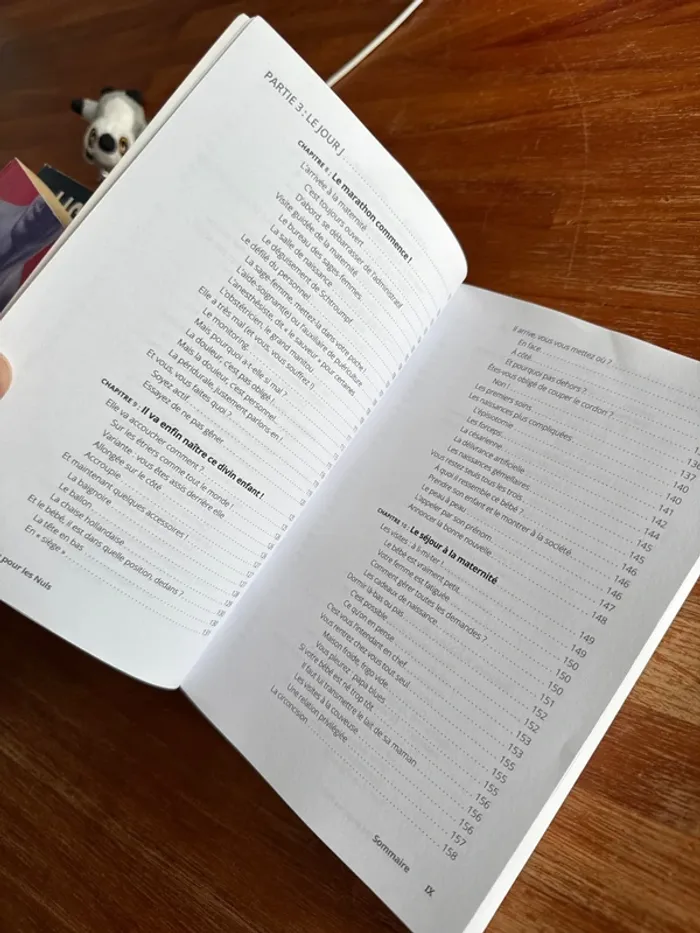 PARTIE 3 : LE JOUR J
CHAPITRE 8 : Le marathon commence !
L'arrivée à la maternité
C'est toujours ouvert
D'abord, se débarrasser de l'administratif
Visite guidée de la maternité
Le bureau des sages-femmes
La salle de naissance
Le déguisement de Schtroumpf
Le défilé du personnel
La sage-femme, mettez-la dans votre poche !
L'aide-soignant(e) ou l'auxiliaire de puériculture
L'anesthésiste, dit « le sauveur » pour certaines
L'obstétricien, le grand manitou
Elle a très mal (et vous, vous souffrez !)
Le monitoring
Mais pourquoi a-t-elle si mal ?
La douleur, c'est pas obligé !
Mais la douleur, c'est personnel
La péridurale, justement parlons-en !
Et vous, vous faites quoi ?
Soyez actif
Essayez de ne pas gêner
CHAPITRE 9 : Il va enfin naître ce divin enfant !
Elle va accoucher comment ?
Sur les étriers comme tout le monde !
Variante : vous êtes assis derrière elle
Allongée sur le côté
Accroupie
Et maintenant quelques accessoires !
La baignoire
Le ballon
La chaise hollandaise
Et le bébé, il est dans quelle position, dedans ?
La tête en bas
En « siège »
pour les Nuls
Il arrive, vous vous mettez où ?
En face
À côté
Et pourquoi pas dehors ?
Êtes-vous obligé de couper le cordon ?
Non !
Les premiers soins
Les naissances plus compliquées 137
L'épisiotomie 140
Les forceps 140
La césarienne 141
La délivrance artificielle 142
Les naissances gémellaires 144
Vous restez seuls tous les trois 145
À quoi il ressemble ce bébé ? 145
Prendre son enfant et le montrer à la société 146
Le peau à peau 146
L'appeler par son prénom 147
Annoncer la bonne nouvelle 148
CHAPITRE 10 : Le séjour à la maternité 149
Les visites : à mi-ter ! 149
Le bébé est vraiment petit 150
Votre femme est fatiguée 150
Comment gérer toutes les demandes ? 150
Les cadeaux de naissance 151
Dormir là-bas ou pas 152
C'est possible 152
Ce qu'on en pense 153
C'est vous l'intendant en chef 153
Vous rentrez chez vous tout seul 155
Maison froide, frigo vide 155
Vous pleurez : papa blues 155
Si votre bébé est né trop tôt 156
Il faut lui transmettre le lait de sa maman 156
Les visites à la couveuse 156
Une relation privilégiée 157
La circoncision 158
Sommaire IX